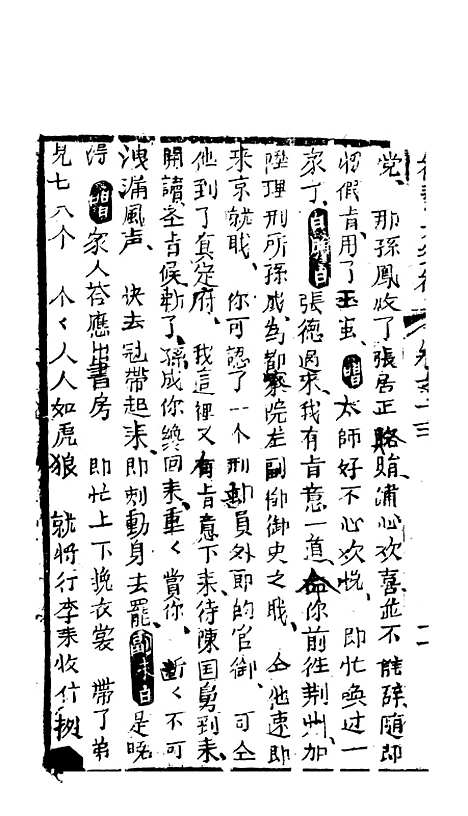 党、那孫鳳收了張居正賂賄滿心欢喜並不推辞随即
将假肯用了玉虫、唱太師好不心欢悅、即忙喚过一
家丁、白張德过来我有肯意一道、命你前往荆州、加
陞理刑所孫成、為都察院左副御史之戝、仝他速即
来京就戝、你可認了一个刑部員外郎的官御、可仝
他到了真定府、我這裡又有肯意下来、待陳国舅到来、
開讀圣肯候斬了孫成你終回来、重く賞你、斷く不可
洩漏風声、快去冠帶起来、即刻動身去罷、副末白是晓
得唱家人荅應出書房即忙上下換衣裳帶了弟
兄七八个个く人人如虎狼就将行李来收什